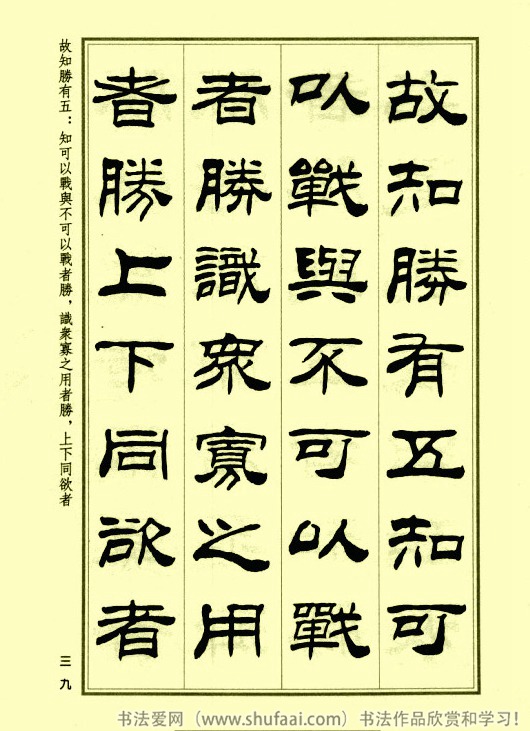 故知勝有五知可
以戰與不可以戰
者勝識衆寡之用
者勝上下同欲者
故知勝有五：知可以戰與不可以戰者勝，識衆寡之用者勝，上下同欲者
三九
书法爱网（www.shufaai.com）书法作品欣赏和学习！